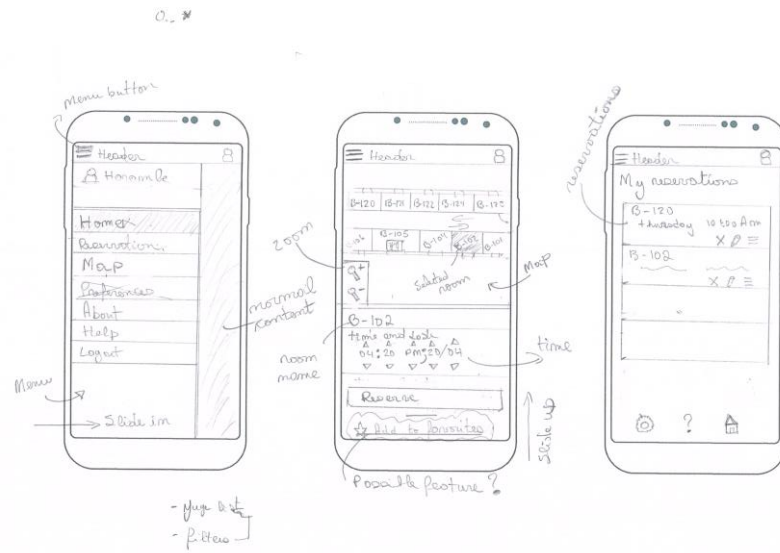 Menu button
Header
Home
Reservations
Map
Preferences
About
Help
Logout
Menu
Slide in
normal content
- filters
Header
B-120
B-121
B-122
B-124
B-105
B-104
zoom
Selected room
Map
B-102
room name
time and
04:20 PM 20/04
time
Reserve
Add to favourites
Slide up
Possible feature?
reservations
Header
My reservations
B-120
thursday
B-102
?